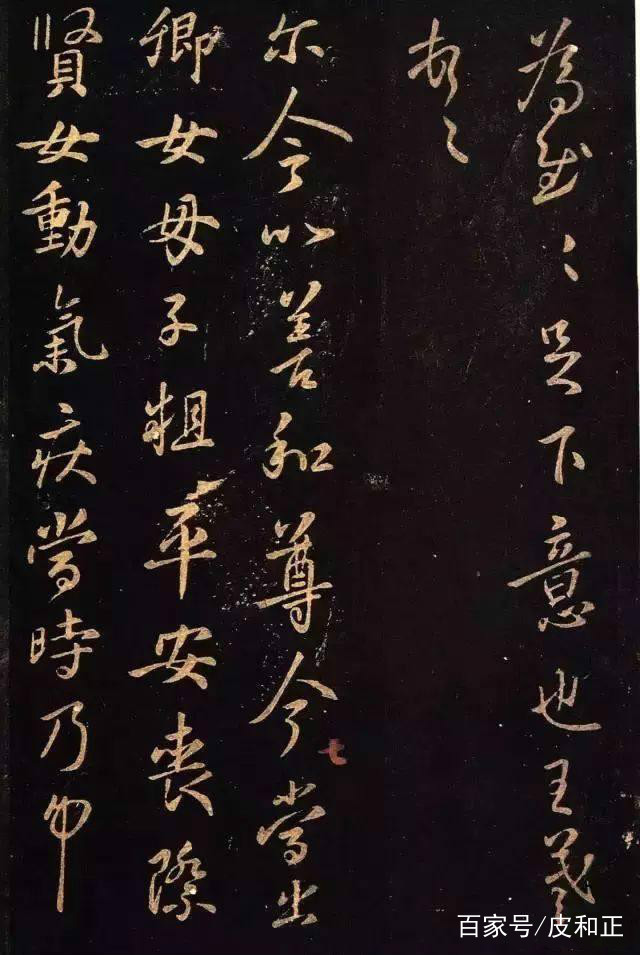 為慰〻足下意也王羲之
尔今以善和尊今當出
卿女母子粗平安喪際
賢女動氣疾當時乃
七
百家号/皮和正